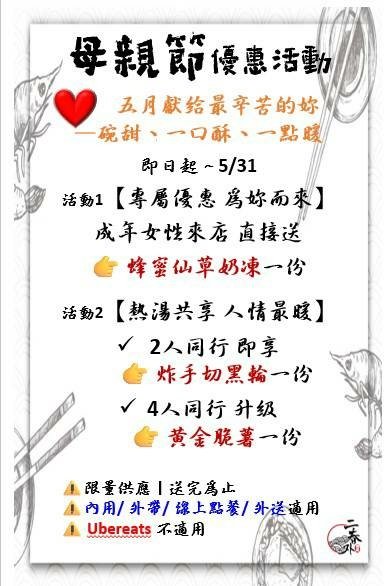 母親節優惠活動
五月獻給最辛苦的妳
一碗甜、一口酥、一點暖
即日起 ~ 5/31
活動1【專屬優惠 為妳而來】
成年女性來店 直接送
蜂蜜仙草奶凍一份
活動2【熱湯共享 人情最暖】
✓ 2人同行 即享
炸手切黑輪一份
✓ 4人同行 升級
黃金脆薯一份
限量供應｜送完為止
內用/ 外帶/ 線上點餐/ 外送適用
Ubereats 不適用